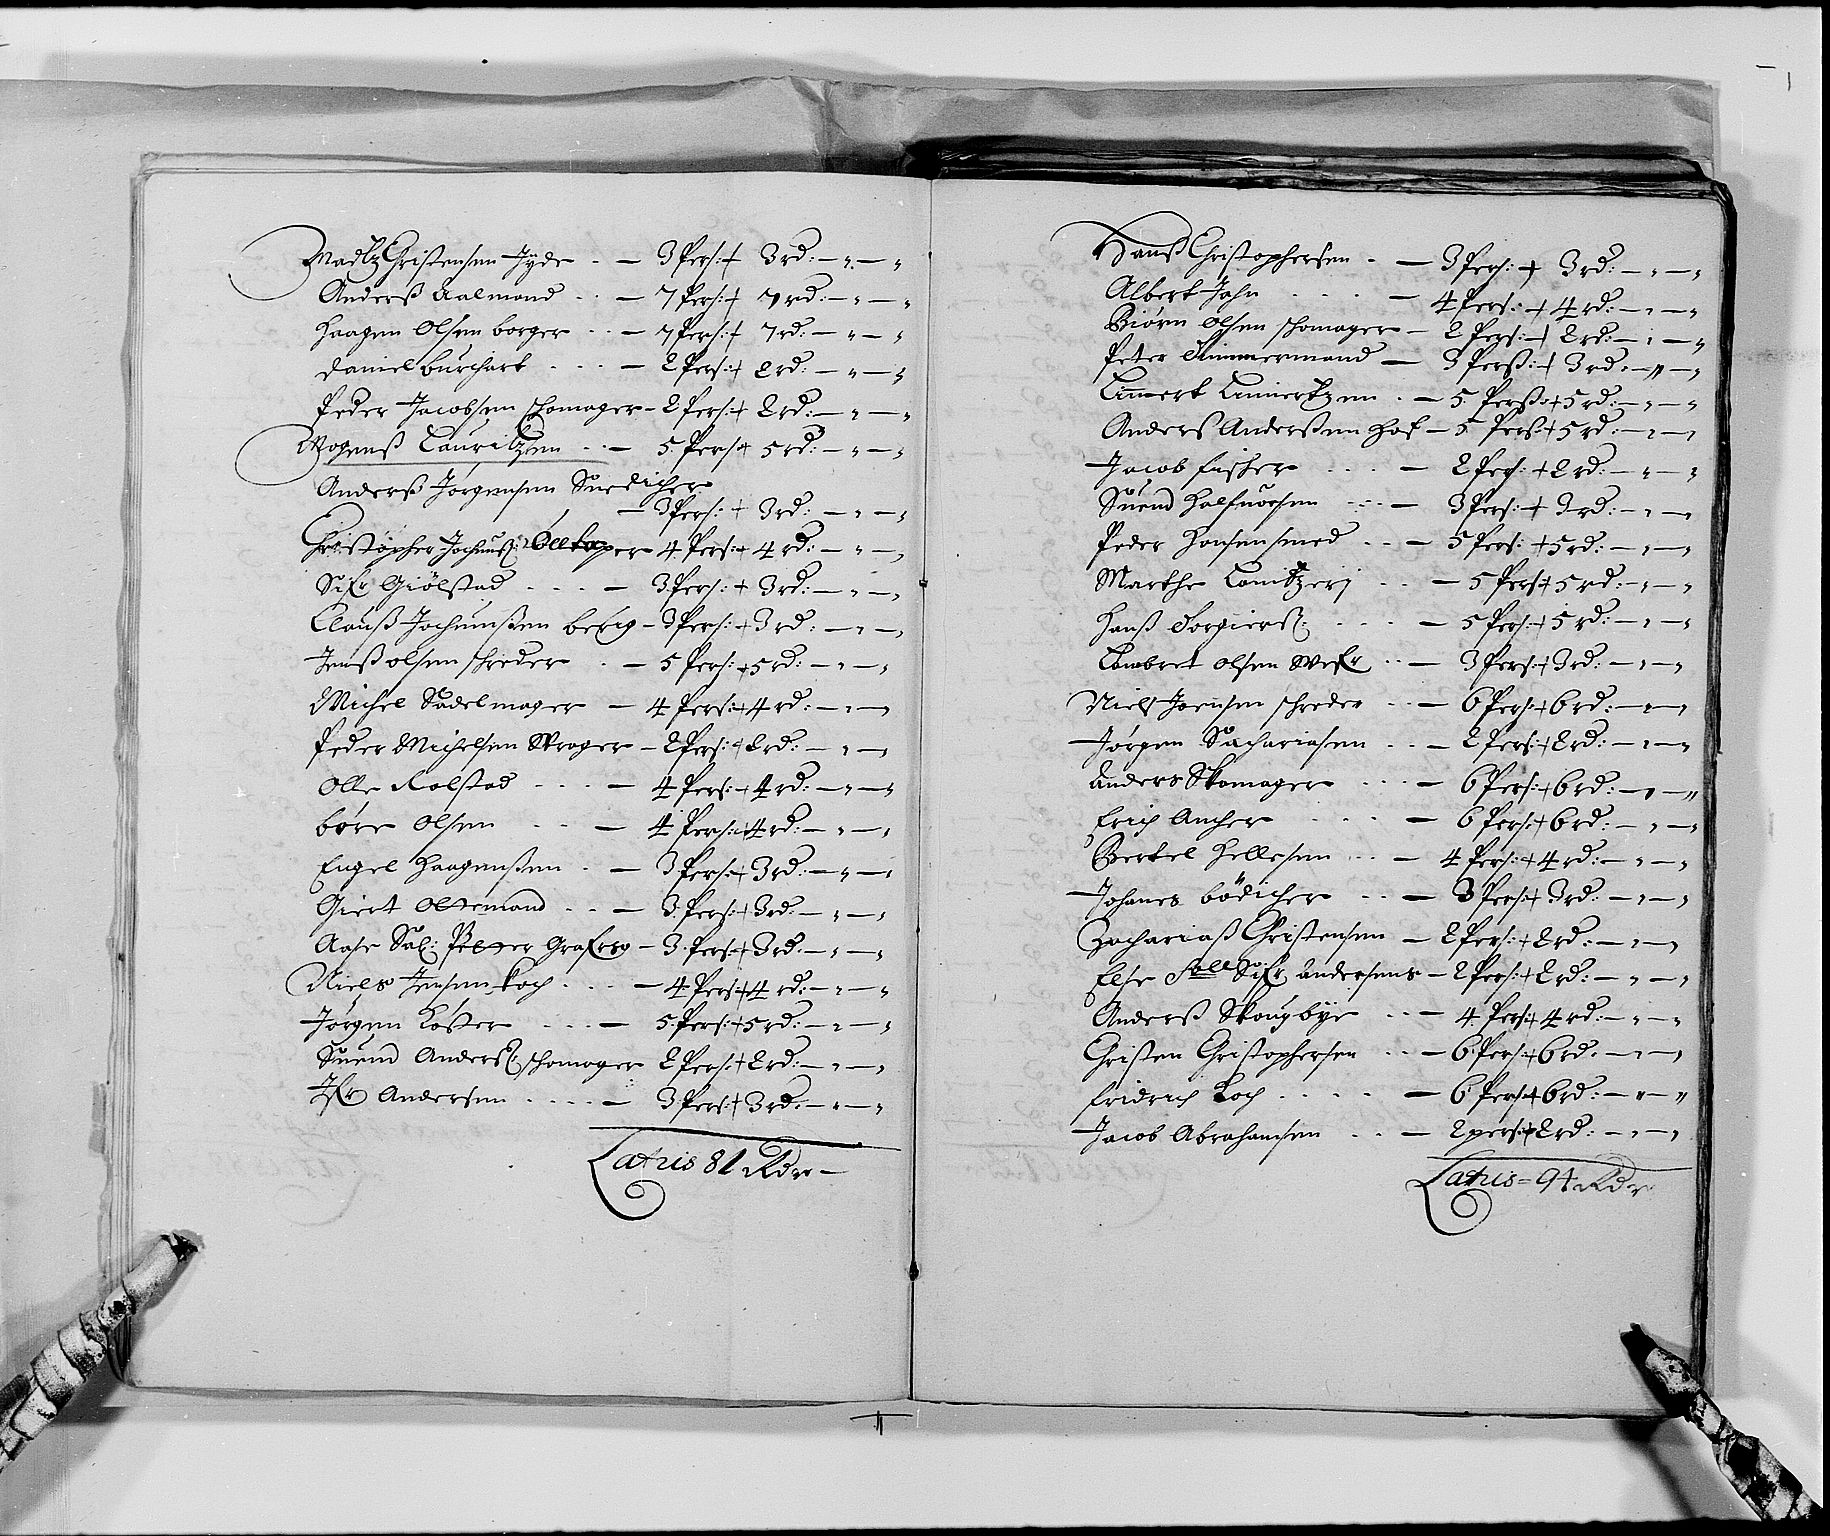 Madtz Christensen Jyde - - — 3 Pers: + 3 rd: — " — "
Anderß Aalmand - - — 7 Pers: + 7 rd: — " — "
Haagen Olsen borger - - — 7 Pers: + 7 rd: — " — "
Daniel burchart - - - — 2 Pers: + 2 rd: — " — "
Peder Jacobsen schomager — 2 Pers: + 2 rd: — " — "
Mogenß Lauritzen - - — 5 Pers: + 5 rd: — " — "
Anderß Jørgensen Snedicher
— 3 Pers: + 3 rd: — " — "
Christopher Jochumß: 4 Pers: + 4 rd: — " — "
Sifr Giølstad - - - — 3 Pers: + 3 rd: — " — "
Clauß Jochumßen — 3 Pers: + 3 rd: — " — "
Jenß olsen schreder - — 5 Pers: + 5 rd: — " — "
Michel Sadelmager — 4 Pers: + 4 rd: — " — "
Peder Michelsen — 2 Pers: + 2 rd: — " — "
Olle Rolstad - - - — 4 Pers: + 4 rd: — " — "
børe Olsen - - — 4 Pers: + 4 rd: — " — "
Engel Haagenßen - — 3 Pers: + 3 rd: — " — "
Giert Oltemand - - — 3 Pers: + 3 rd: — " — "
Aase Sal: Petter — 3 Pers: + 3 rd: — " — "
Niels Jensen Koch - - - — 4 Pers: + 4 rd: — " — "
Jørgen Koster - - - — 5 Pers: + 5 rd: — " — "
Suend Anderß: schomager 2 Pers: + 2 rd: — " — "
Andersen - - - - — 3 Pers: + 3 rd: — " — "
Latris 81 Rdr —
Hanß Christophersen - — 3 Pers: + 3 rd: — " — "
Albert Jahn - - - - — 4 Pers: + 4 rd: — " — "
Biørn Olsen schomager — 2 Pers: + 2 rd: — " — "
Peter Timmermand — 3 Perß: + 3 rd: — " — "
- — 5 Perß: + 5 rd: — " — "
Anderß Anderßen Hof — 5 Pers: + 5 rd: — " — "
Jacob fischer - - - — 2 Pers: + 2 rd: — " — "
Suend Halfuorsen - - - — 3 Pers: + 3 rd: — " — "
Peder Hansen smed - - — 5 Pers: + 5 rd: — " — "
Marthe - - — 5 Pers: + 5 rd: — " — "
Hanß Torgierß: - - - — 5 Pers: + 5 rd: — " — "
Lambret Olsen - - — 3 Pers: + 3 rd: — " — "
Nielß Joensen schreder - - — 6 Pers: + 6 rd: — " — "
Jørgen Sachariasen - - — 2 Pers: + 2 rd: — " — "
Anders Skomager - - - — 6 Pers: + 6 rd: — " — "
Erich Ancher - - - - — 6 Pers: + 6 rd: — " — "
Bertel Hellesen - - — 4 Pers: + 4 rd: — " — "
Johanes bødicher - - — 3 Pers: + 3 rd: — " — "
Zachariaß Christensen — 2 Pers: + 2 rd: — " — "
Else Sifr Andersens — 2 Pers: + 2 rd: — " — "
Anderß Skougbye - - — 4 Pers: + 4 rd: — " — "
Christen Christophersen - - — 6 Pers: + 6 rd: — " — "
fridrich Koch - - - - — 6 Pers: + 6 rd: — " — "
Jacob Abrahamsen - - — 2 pers: + 2 rd: — " — "
Latris = 94 Rdr